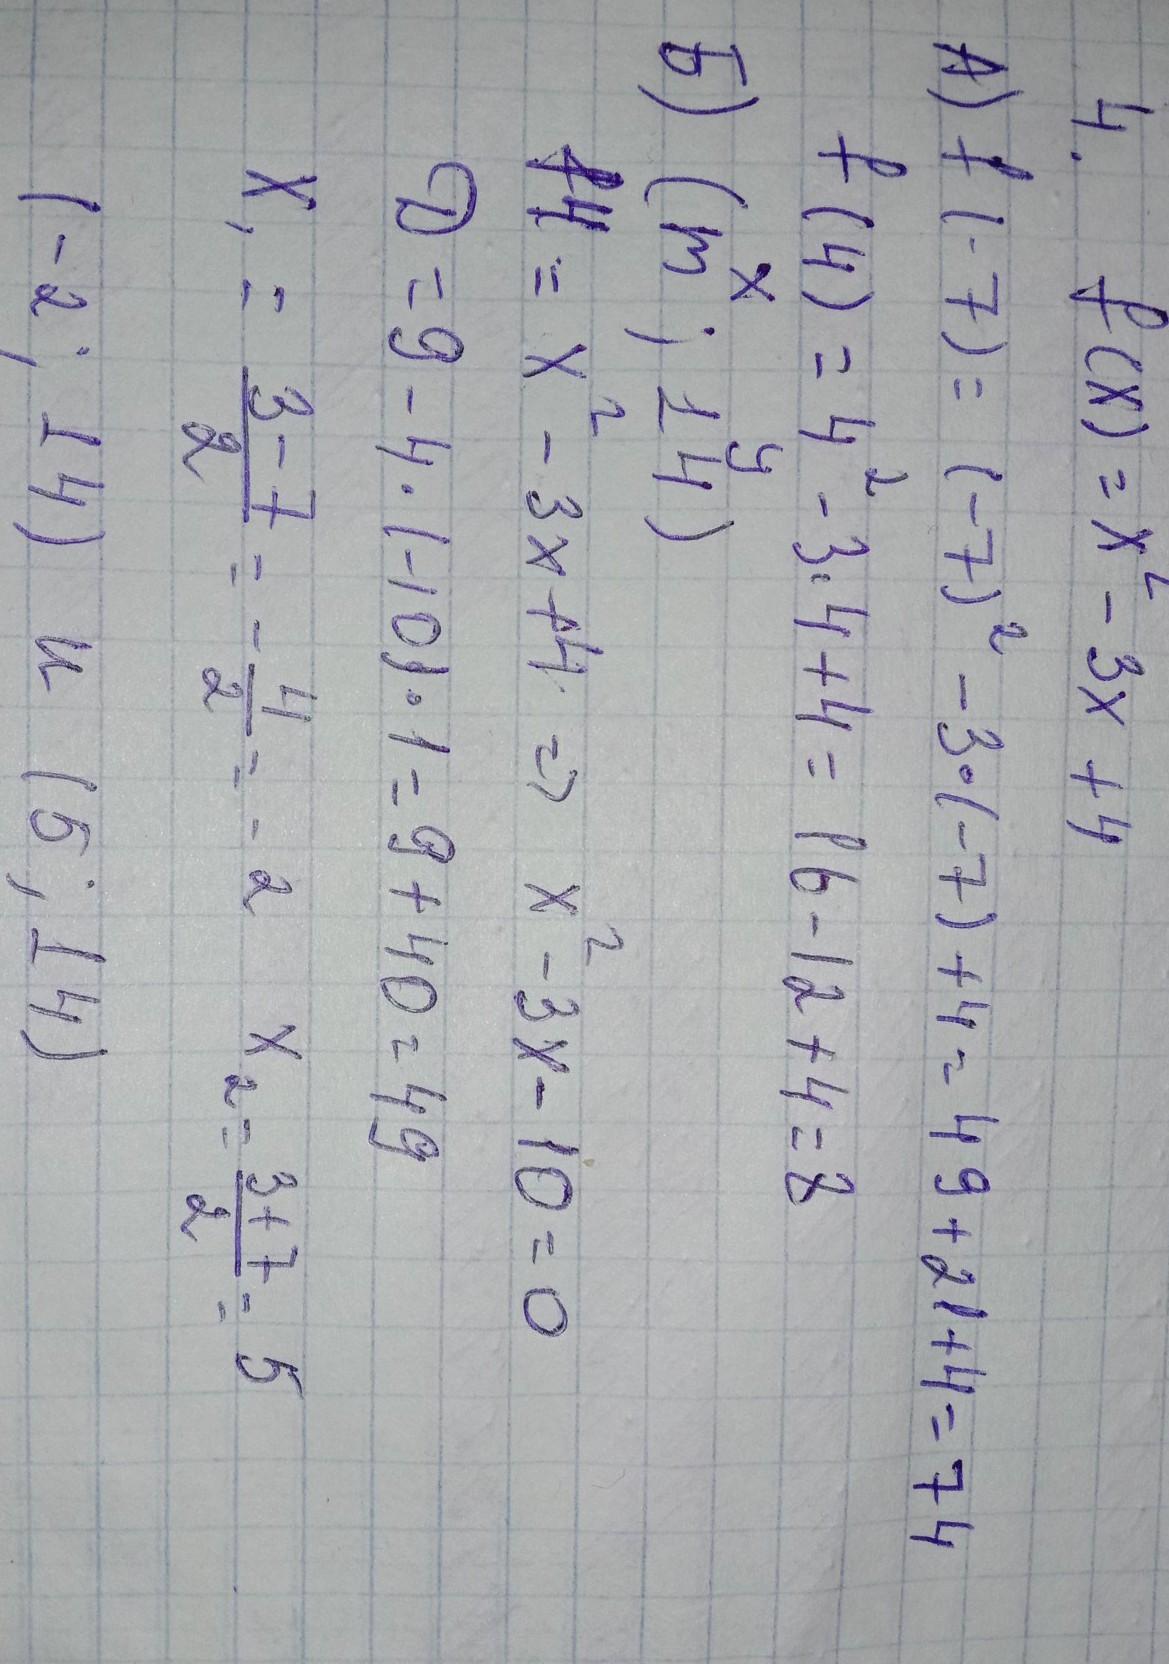 4. f(x) = x² - 3x + 4
А) f(-7) = (-7)² - 3•(-7) + 4 = 49 + 21 + 4 = 74
f(4) = 4² - 3·4 + 4 = 16 - 12 + 4 = 8
Б) (m; 14)
x y
14 = x² - 3x + 4 => x² - 3x - 10 = 0
D = 9 - 4·(-10)·1 = 9 + 40 = 49
x₁ = (3-7)/2 = -4/2 = -2 x₂ = (3+7)/2 = 5
(-2; 14) и (5; 14)